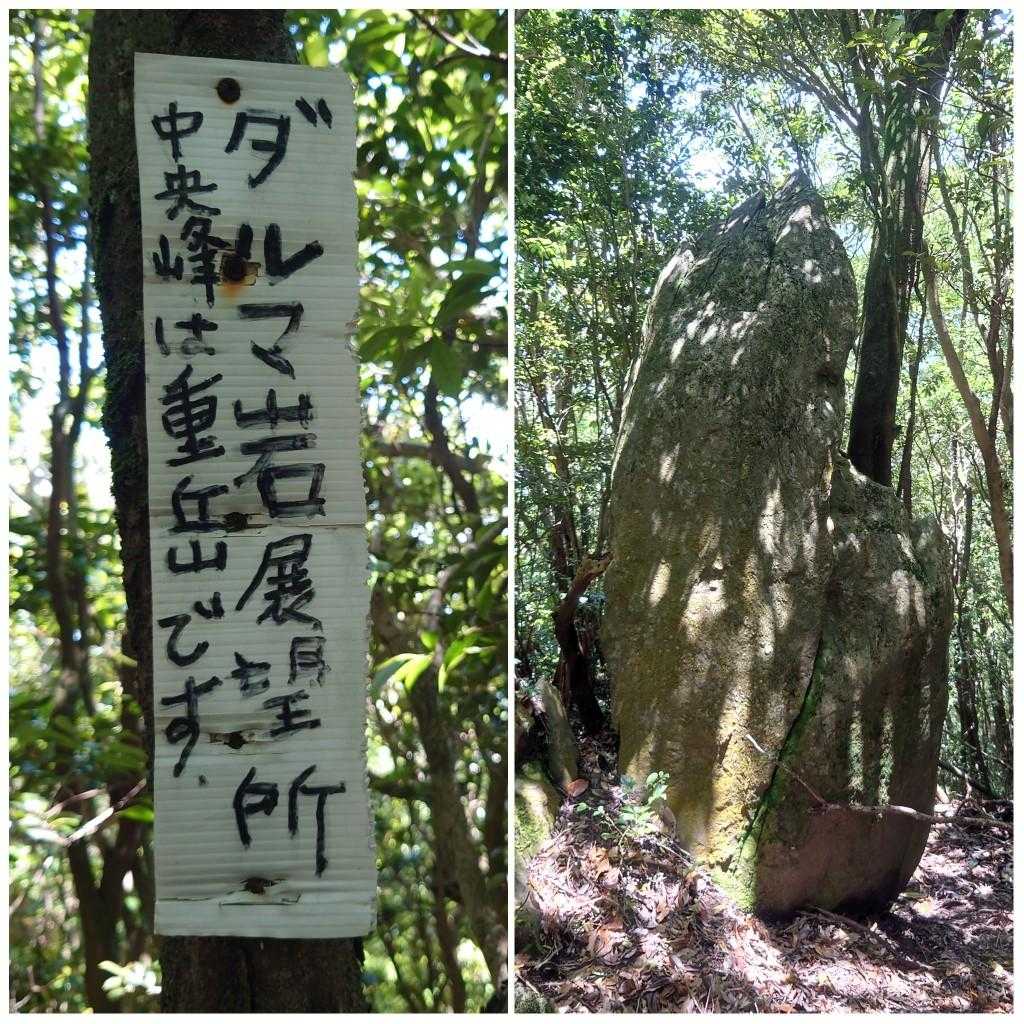 ダルマ岩展望所
中央峰は重丘山です.